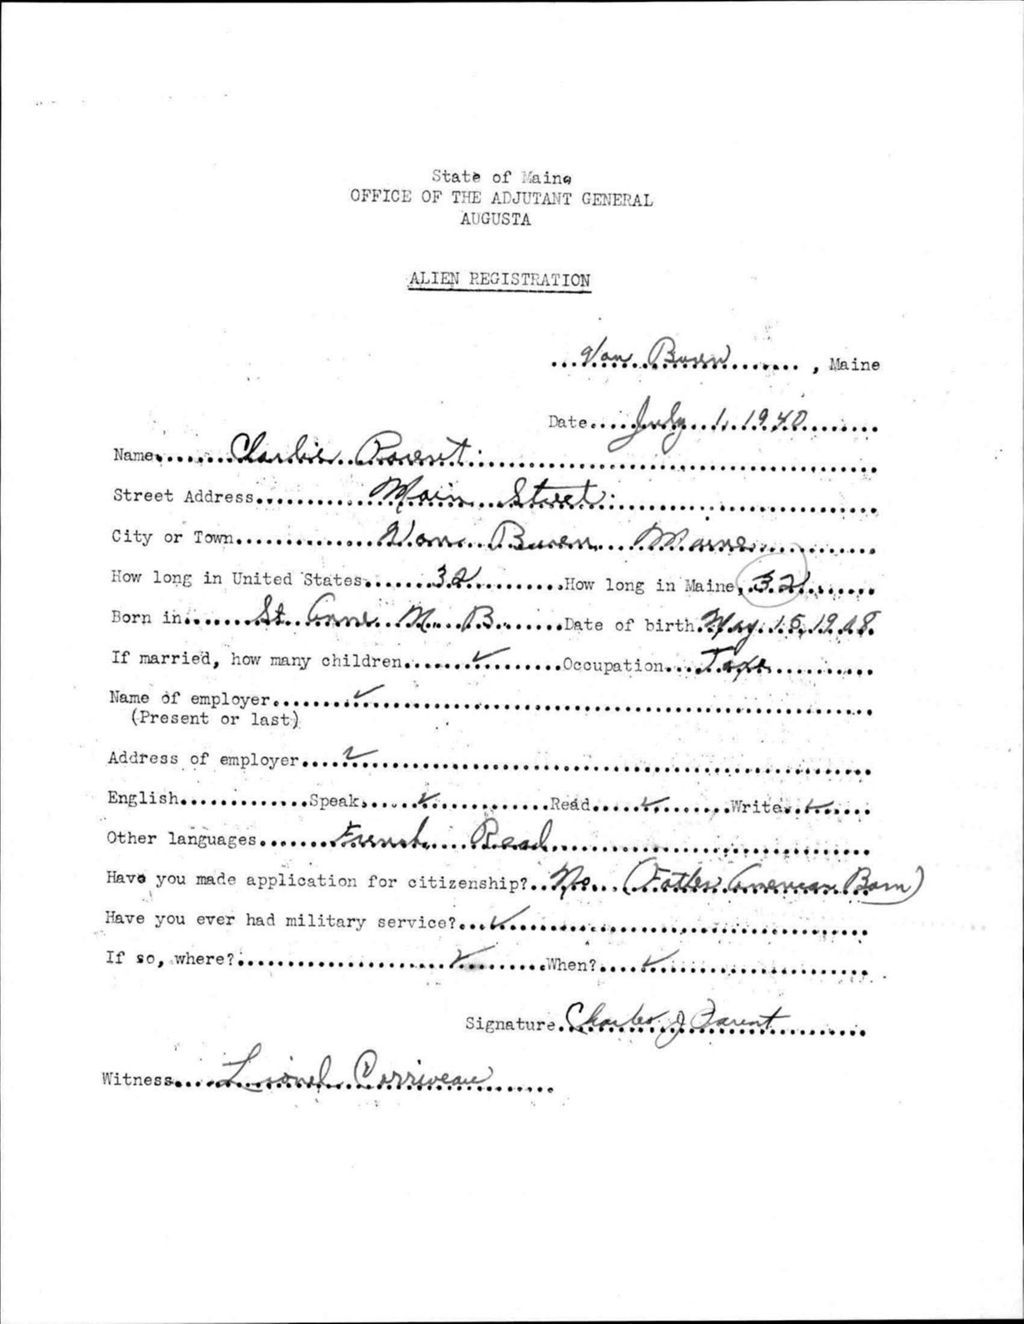 State of Maine
OFFICE OF THE ADJUTANT GENERAL
AUGUSTA
ALIEN REGISTRATION
Van Buren, Maine
Date July 1, 1940
Name Charlie Parent
Street Address Main Street
City or Town Van Buren Maine
How long in United States 32 How long in Maine 32
Born in St. Anne N. B. Date of birth May 15, 19
If married, how many children ✓ Occupation
Name of employer ✓
(Present or last)
Address of employer ✓
English Speak ✓ Read ✓ Write ✓
Other languages French Read
Have you made application for citizenship? No (Father American Born)
Have you ever had military service? ✓
If so, where? ✓ When? ✓
Signature Charles J Parent
Witness Lionel Corriveau